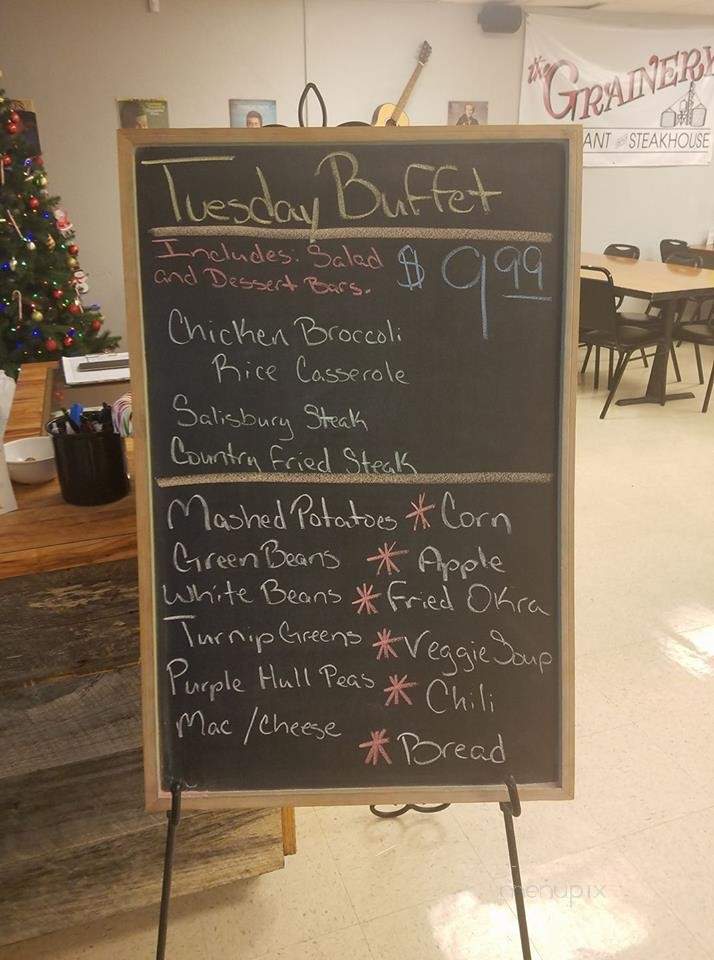 the GRAINERY
ANT and STEAKHOUSE
Tuesday Buffet
Includes: Salad
and Dessert Bars.
$ 9.99
Chicken Broccoli
Rice Casserole
Salisbury Steak
Country Fried Steak
Mashed Potatoes * Corn
Green Beans * Apple
White Beans * Fried Okra
Turnip Greens * Veggie Soup
Purple Hull Peas * Chili
Mac / Cheese * Bread
menupix